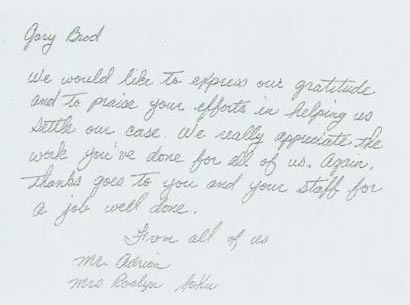 Gary Brod
We would like to express our gratitude
and to praise your efforts in helping us
settle our case. We really appreciate the
work you've done for all of us. Again,
thanks goes to you and your staff for
a job well done.
From all of us
Mr. Adrian
Mrs Roslyn